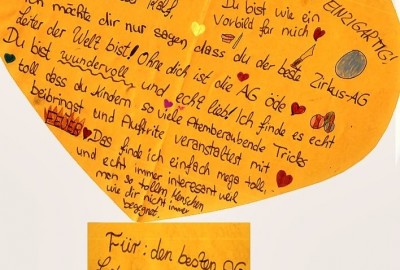 Rolf,
Du bist wie ein
Vorbild für mich
EINZIGARTIG!
Ich möchte dir nur sagen dass du der beste Zirkus-AG
Leiter der Welt bist! Ohne dich ist die AG öde
Du bist wundervoll und echt lieb! Ich finde es echt
toll dass du Kindern so viele Atemberaubende Tricks
beibringst und Auftritte veranstaltest mit
FEUER Das finde ich einfach mega toll,
und echt immer interesant weil
man so tollen Menschen
wie dir nicht immer
begegnet
Für: den besten AG